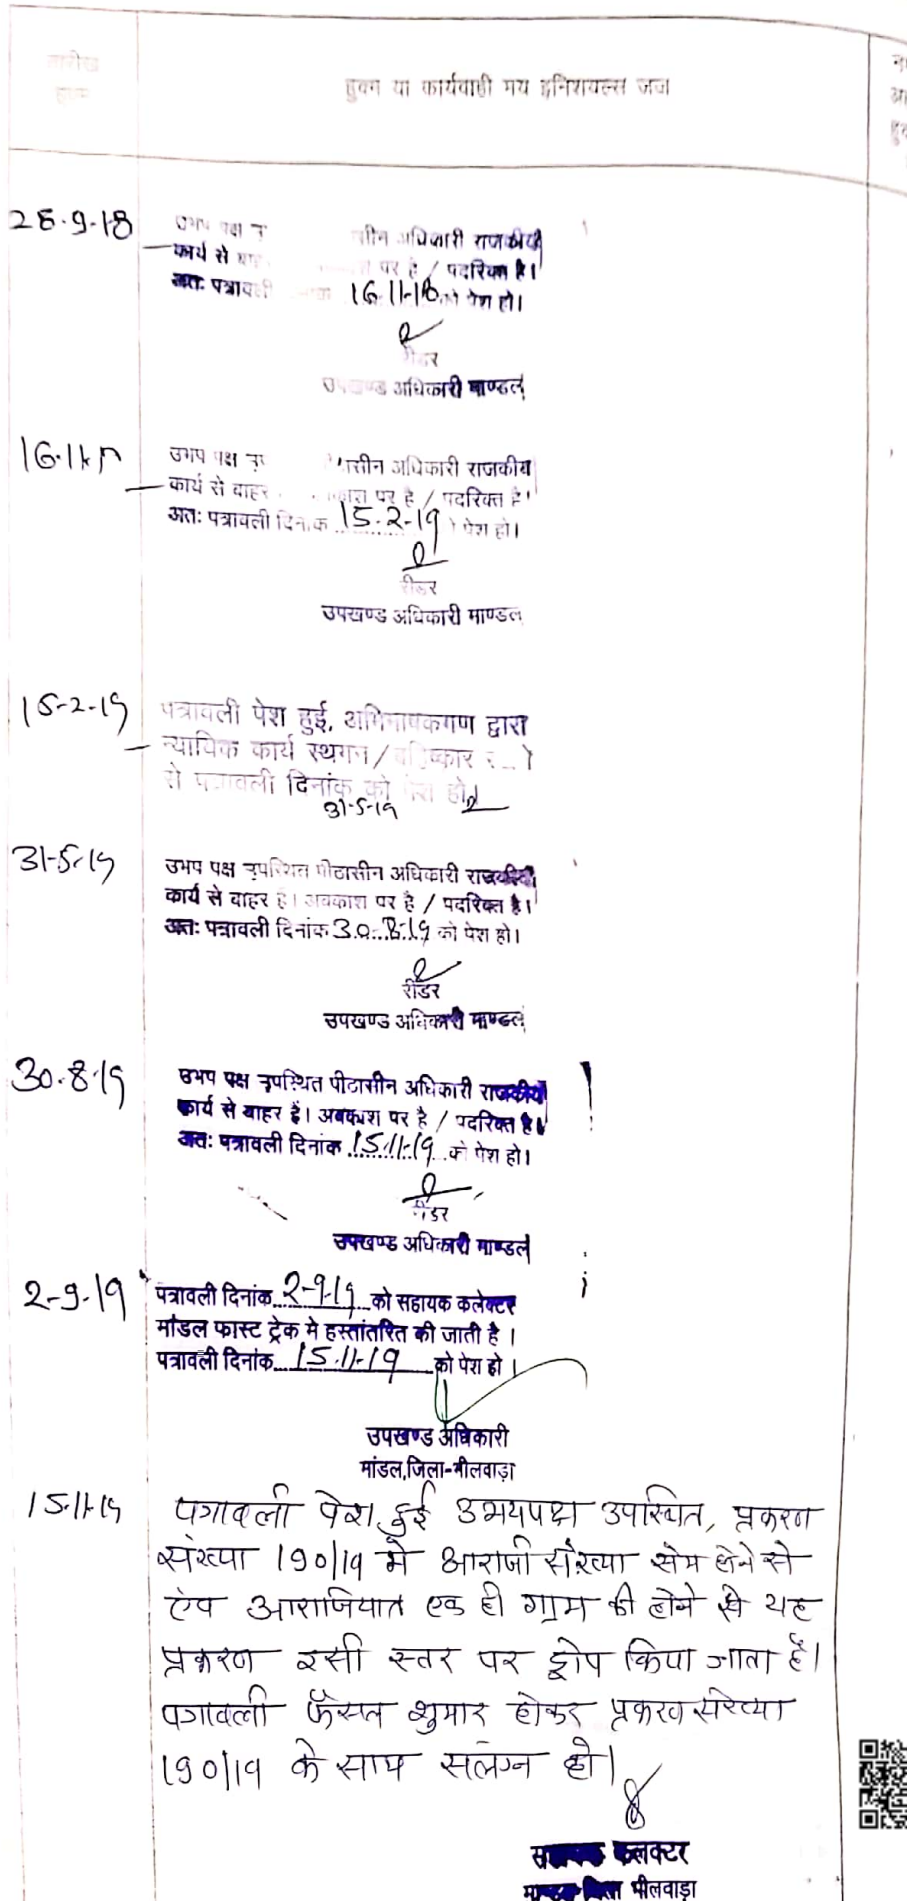 तारीख
हुक्म
हुक्म या कार्यवाही मय इनिशियल्स जज
28.9.18
उभय पक्ष अधिकारी राजकीय
कार्य से पर है / पदरिक्त है।
अतः पत्रावली 16.11.18 को पेश हो।
रीडर
उपखण्ड अधिकारी माण्डल
उभय पक्ष अधिकारी राजकीय
कार्य से बाहर पर है / पदरिक्त है।
अतः पत्रावली दिनांक 15.2.19 को पेश हो।
रीडर
उपखण्ड अधिकारी माण्डल
15-2-19
पत्रावली पेश हुई, अभिभाषकगण द्वारा
न्यायिक कार्य स्थगन / बहिष्कार
से पत्रावली दिनांक को पेश हो।
31-5-19
31-5-19
उभय पक्ष उपस्थित पीठासीन अधिकारी राजकीय
कार्य से बाहर है। अवकाश पर है / पदरिक्त है।
अतः पत्रावली दिनांक 30.8.19 को पेश हो।
रीडर
उपखण्ड अधिकारी माण्डल
30.8.19
उभय पक्ष उपस्थित पीठासीन अधिकारी राजकीय
कार्य से बाहर है। अवकाश पर है / पदरिक्त है।
अतः पत्रावली दिनांक 15.11.19 को पेश हो।
रीडर
उपखण्ड अधिकारी माण्डल
2-9-19
पत्रावली दिनांक 2-9-19 को सहायक कलेक्टर
मांडल फास्ट ट्रेक मे हस्तांतरित की जाती है।
पत्रावली दिनांक 15.11.19 को पेश हो।
उपखण्ड अधिकारी
मांडल, जिला-भीलवाड़ा
15.11.19
पत्रावली पेश हुई उभयपक्ष उपस्थित, प्रकरण
संख्या 190/19 मे आराजी संख्या सेम होने से
एंव आराजियात एक ही ग्राम की होने से यह
प्रकरण इसी स्तर पर ड्रोप किया जाता है।
पत्रावली फैसल शुमार होकर प्रकरण संख्या
190/19 के साथ संलग्न हो।
कलक्टर
भीलवाड़ा